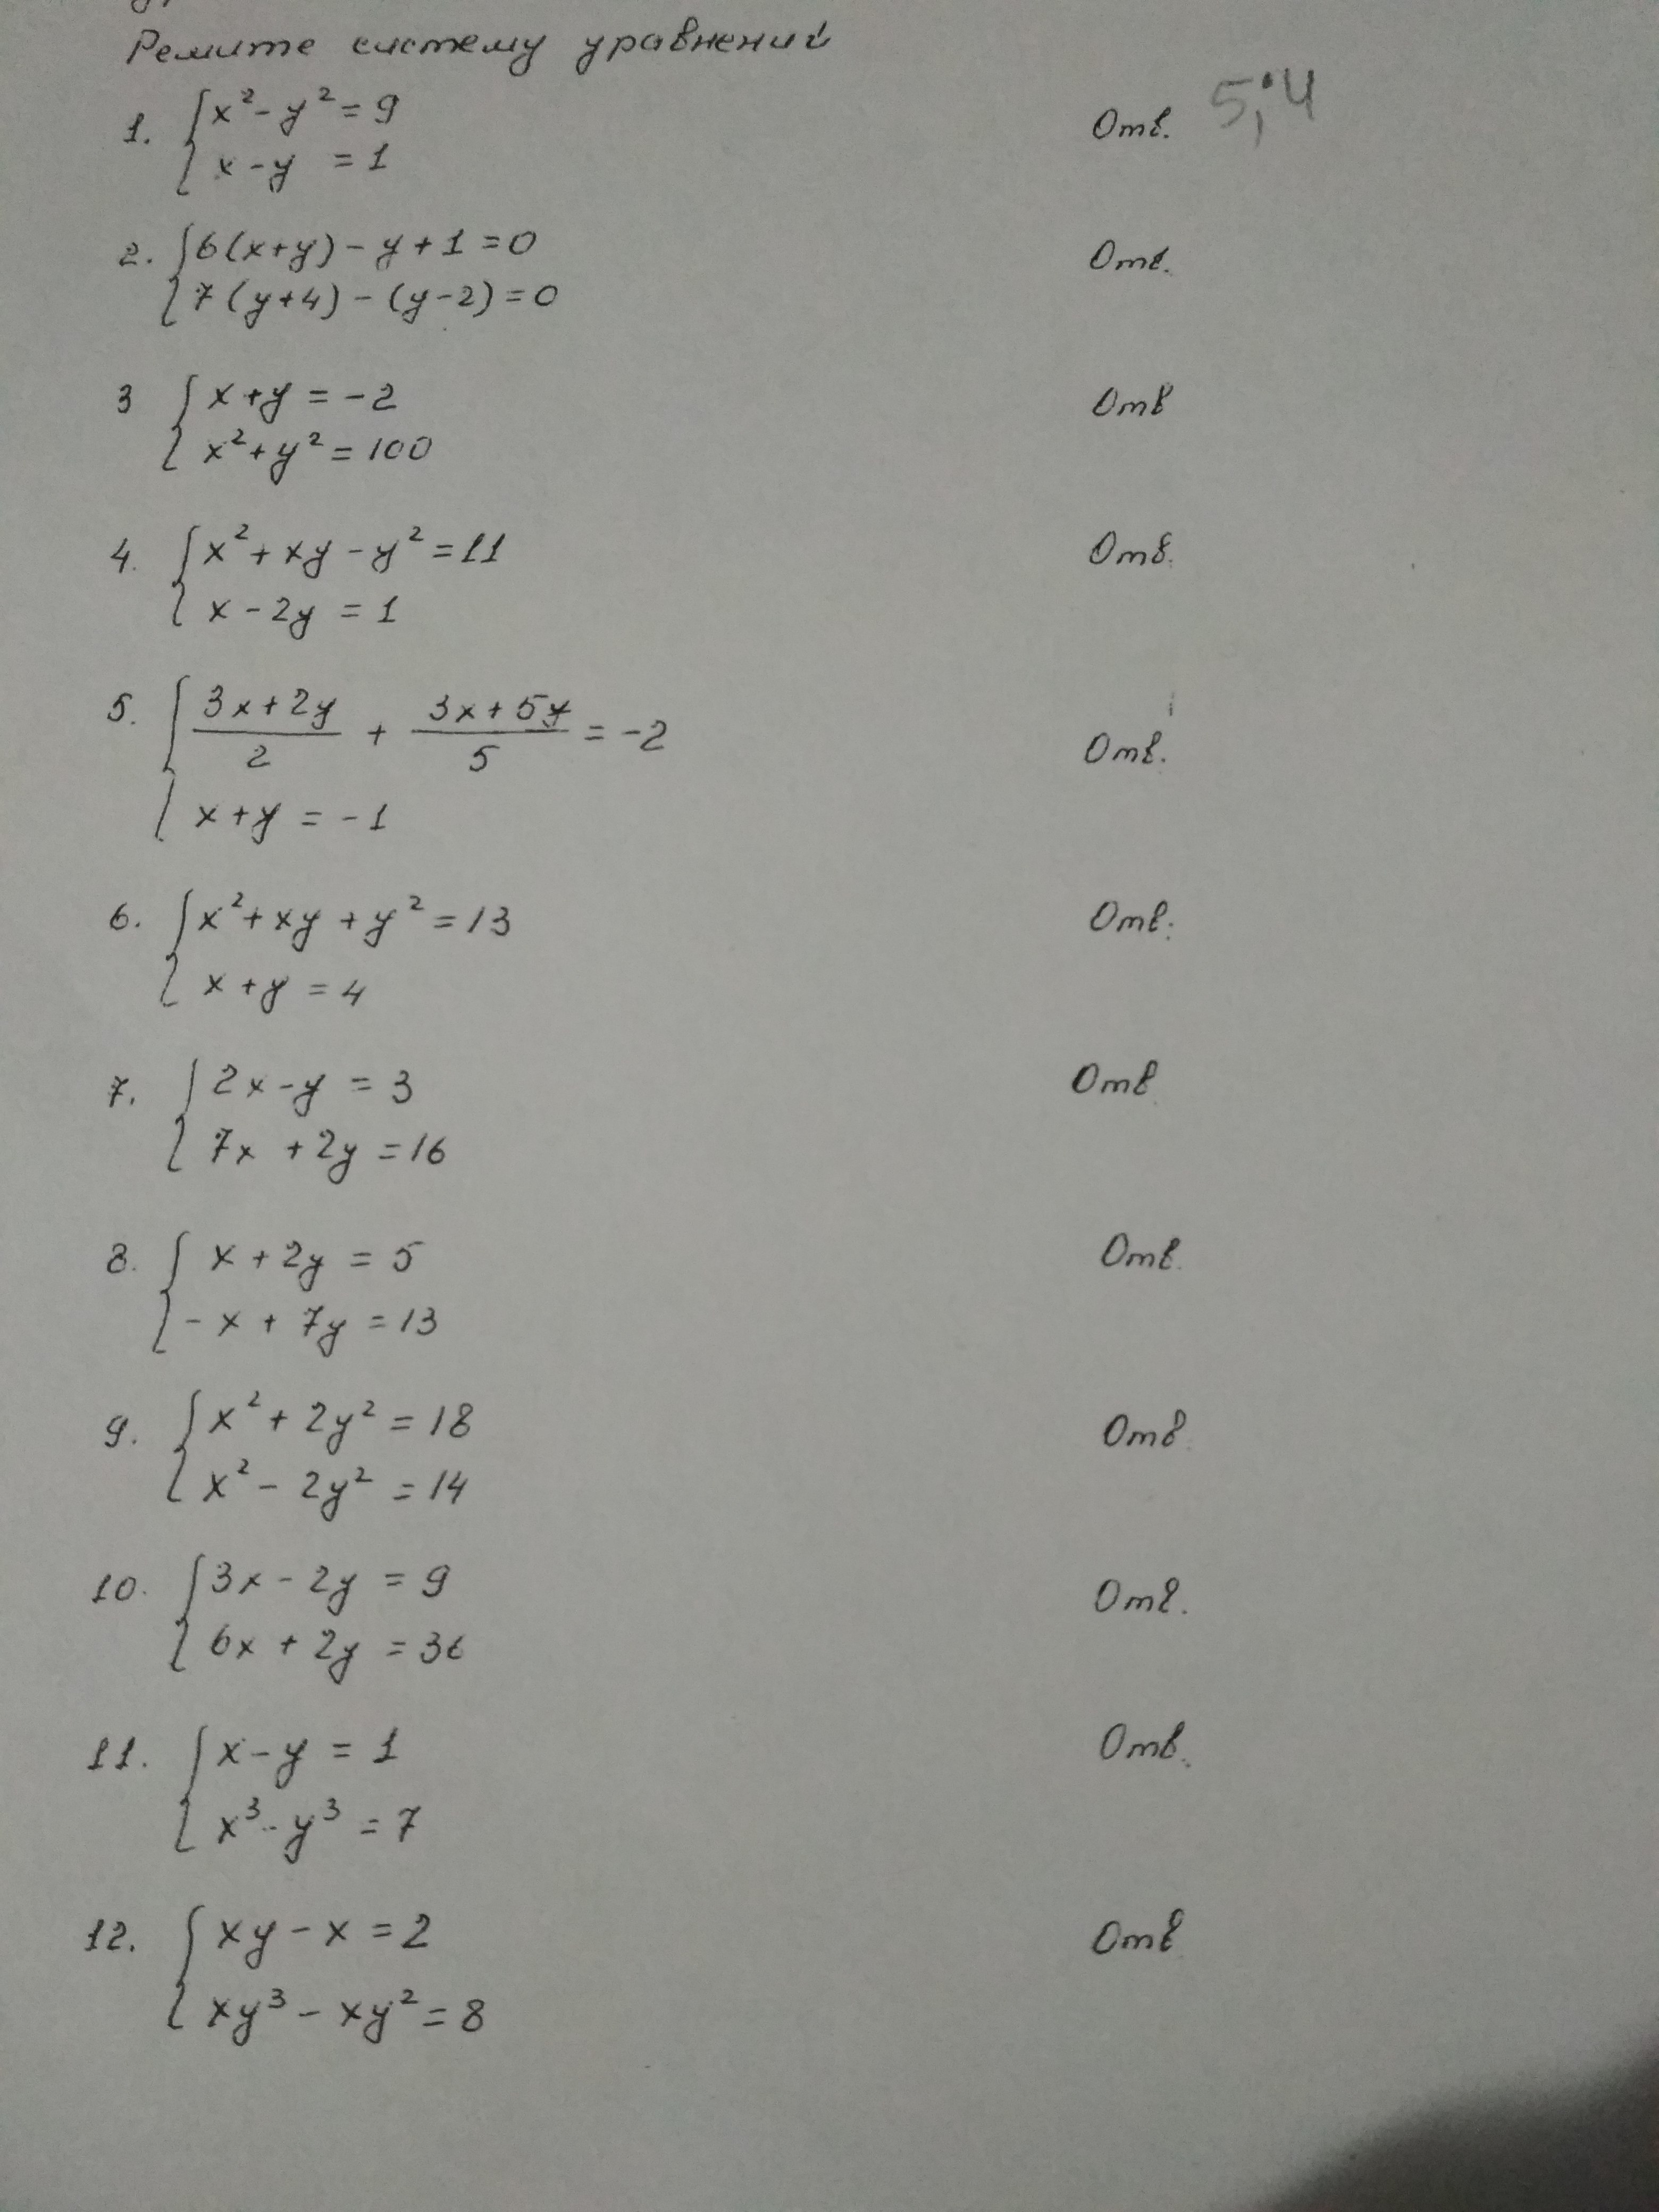 Решите систему уравнений
1. { x² - y² = 9
x - y = 1
Отв. 5; 4
2. { 6(x+y) - y + 1 = 0
7(y+4) - (y-2) = 0
Отв.
3 { x + y = -2
x² + y² = 100
Отв
4. { x² + xy - y² = 11
x - 2y = 1
Отв.
5. { (3x+2y)/2 + (3x+5y)/5 = -2
x + y = -1
Отв.
6. { x² + xy + y² = 13
x + y = 4
Отв.
7. { 2x - y = 3
7x + 2y = 16
Отв
8. { x + 2y = 5
-x + 7y = 13
Отв.
9. { x² + 2y² = 18
x² - 2y² = 14
Отв
10. { 3x - 2y = 9
6x + 2y = 36
Отв.
11. { x - y = 1
x³ - y³ = 7
Отв.
12. { xy - x = 2
xy³ - xy² = 8
Отв